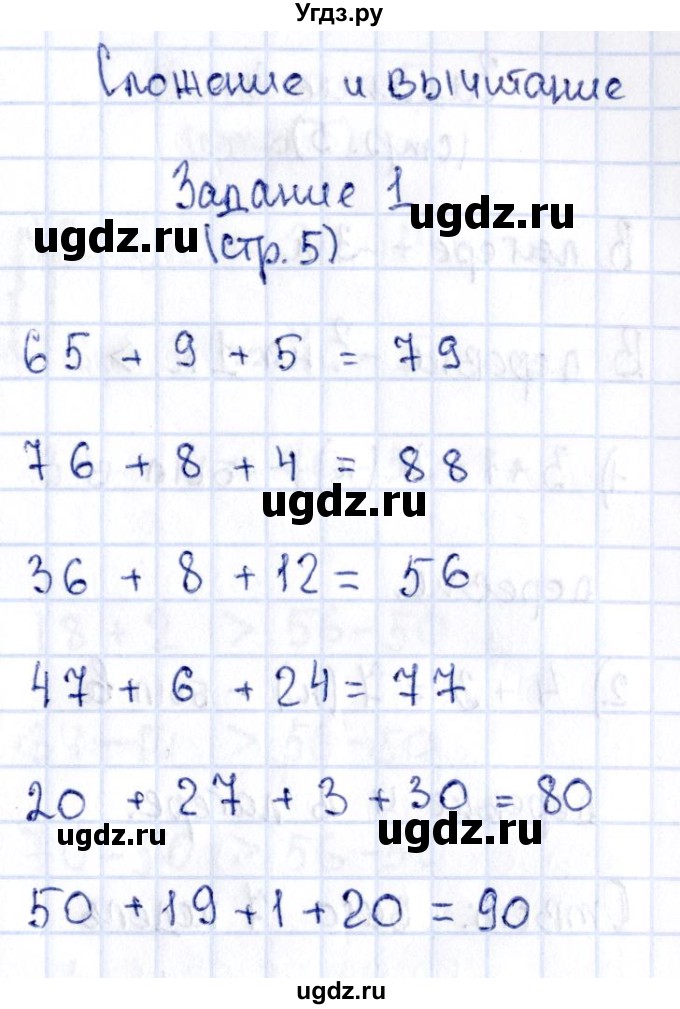 Угдз.ру
Сложение и вычитание
Задание 1
ugdz.ru ugdz.ru
(стр. 5)
65 + 9 + 5 = 79
76 + 8 + 4 = 88
ugdz.ru
36 + 8 + 12 = 56
47 + 6 + 24 = 77
20 + 27 + 3 + 30 = 80
ugdz.ru ugdz.ru
50 + 19 + 1 + 20 = 90
ugdz.ru